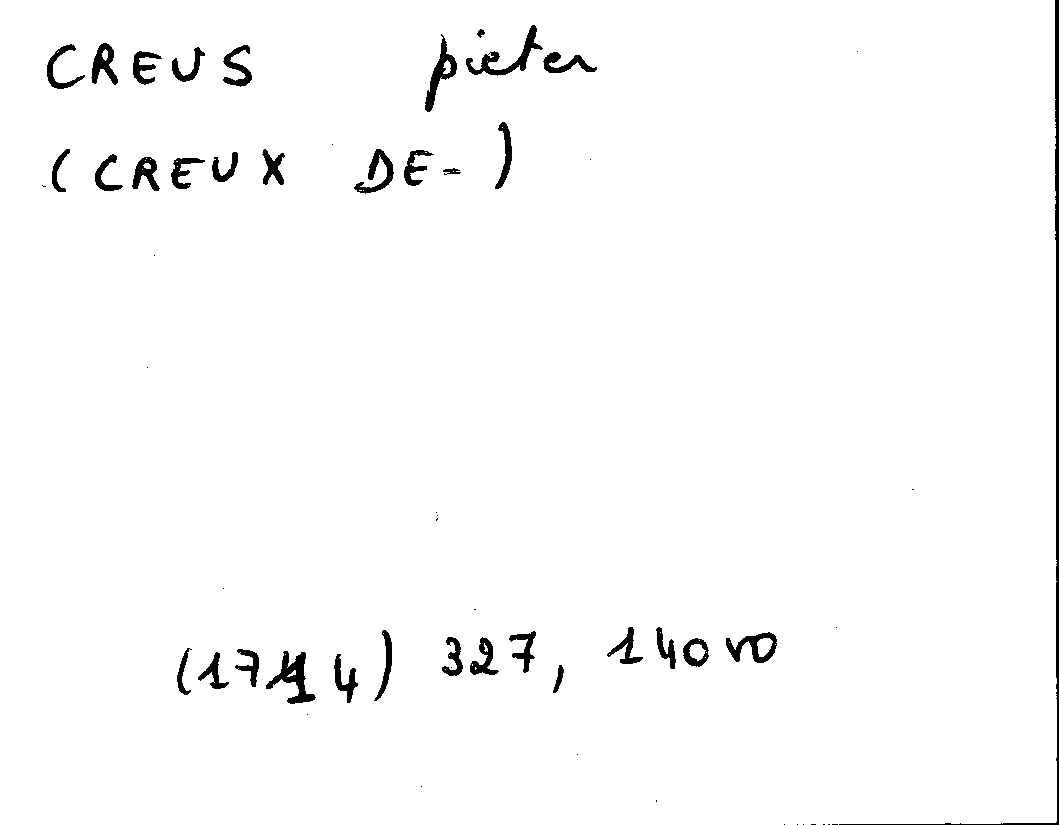 CREUS pieter
(CREUX DE-)
(1714) 327, 140 vo